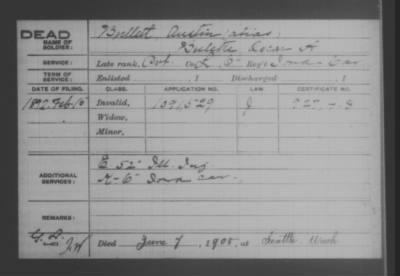 DEAD
NAME OF SOLDIER: Bullett, Austin, alias,
Bulette Oscar A
SERVICE: Late rank, Co. Reg't Iowa Cav
TERM OF SERVICE: Enlisted , 1 Discharged , 1
DATE OF FILING. CLASS. APPLICATION NO. LAW CERTIFICATE NO.
1892 Feb Invalid, 1091529 J
Widow,
Minor,
ADDITIONAL SERVICES:
E 52" Ill. Inf
K-6" Iowa Cav.
REMARKS:
Died June 7, 1908, at Seattle Wash